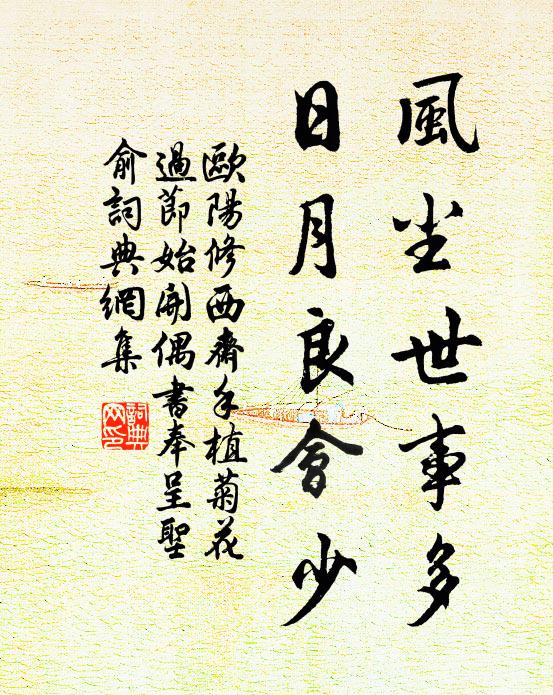 風尘世事多
日月良會少
歐陽修西齋手植菊花
過節始開偶書奉呈聖
俞詞典網集
詞典
网印